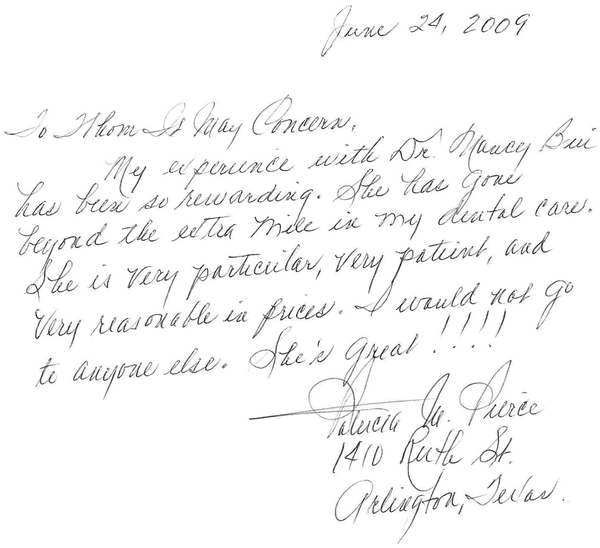 June 24, 2009
To Whom It May Concern,
My experience with Dr. Nancy Bui
has been so rewarding. She has gone
beyond the extra mile in my dental care.
She is very particular, very patient, and
very reasonable in prices. I would not go
to anyone else. She's great!!!!
Patricia M. Pierce
1410 Ruth St.
Arlington, Texas.